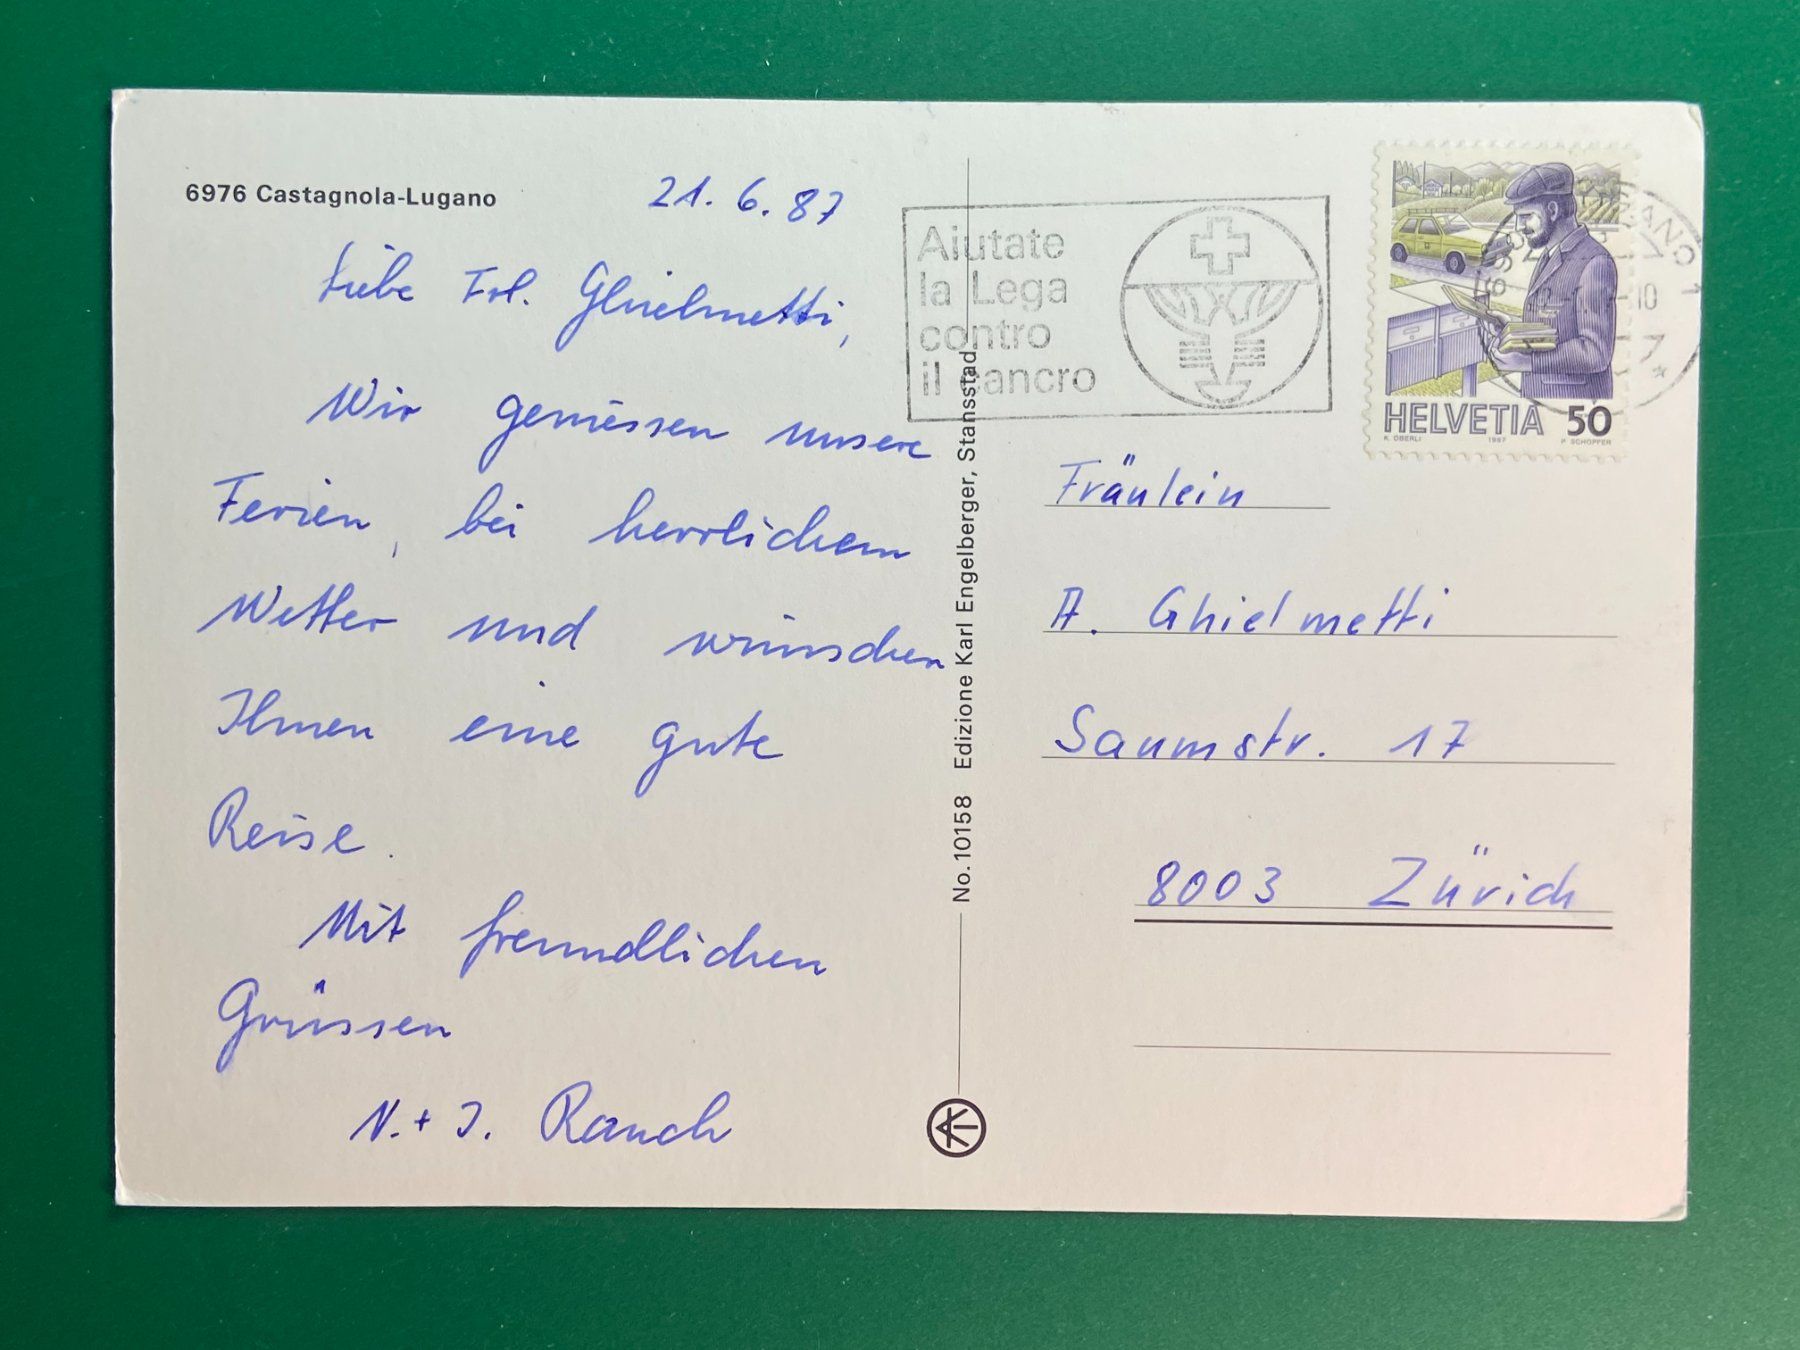 6976 Castagnola-Lugano
21. 6. 87
Liebe Frl. Ghielmetti,
Wir geniessen unsere
Ferien, bei herrlichem
Wetter und wünschen
Ihnen eine gute
Reise.
Mit freundlichen
Grüssen
N. + J. Rauch
No. 10158 Edizione Karl Engelberger, Stansstad
Aiutate
la Lega
contro
il cancro
HELVETIA 50
K. OBERLI 1987 P. SCHOPFER
Fräulein
A. Ghielmetti
Saumstr. 17
8003 Zürich